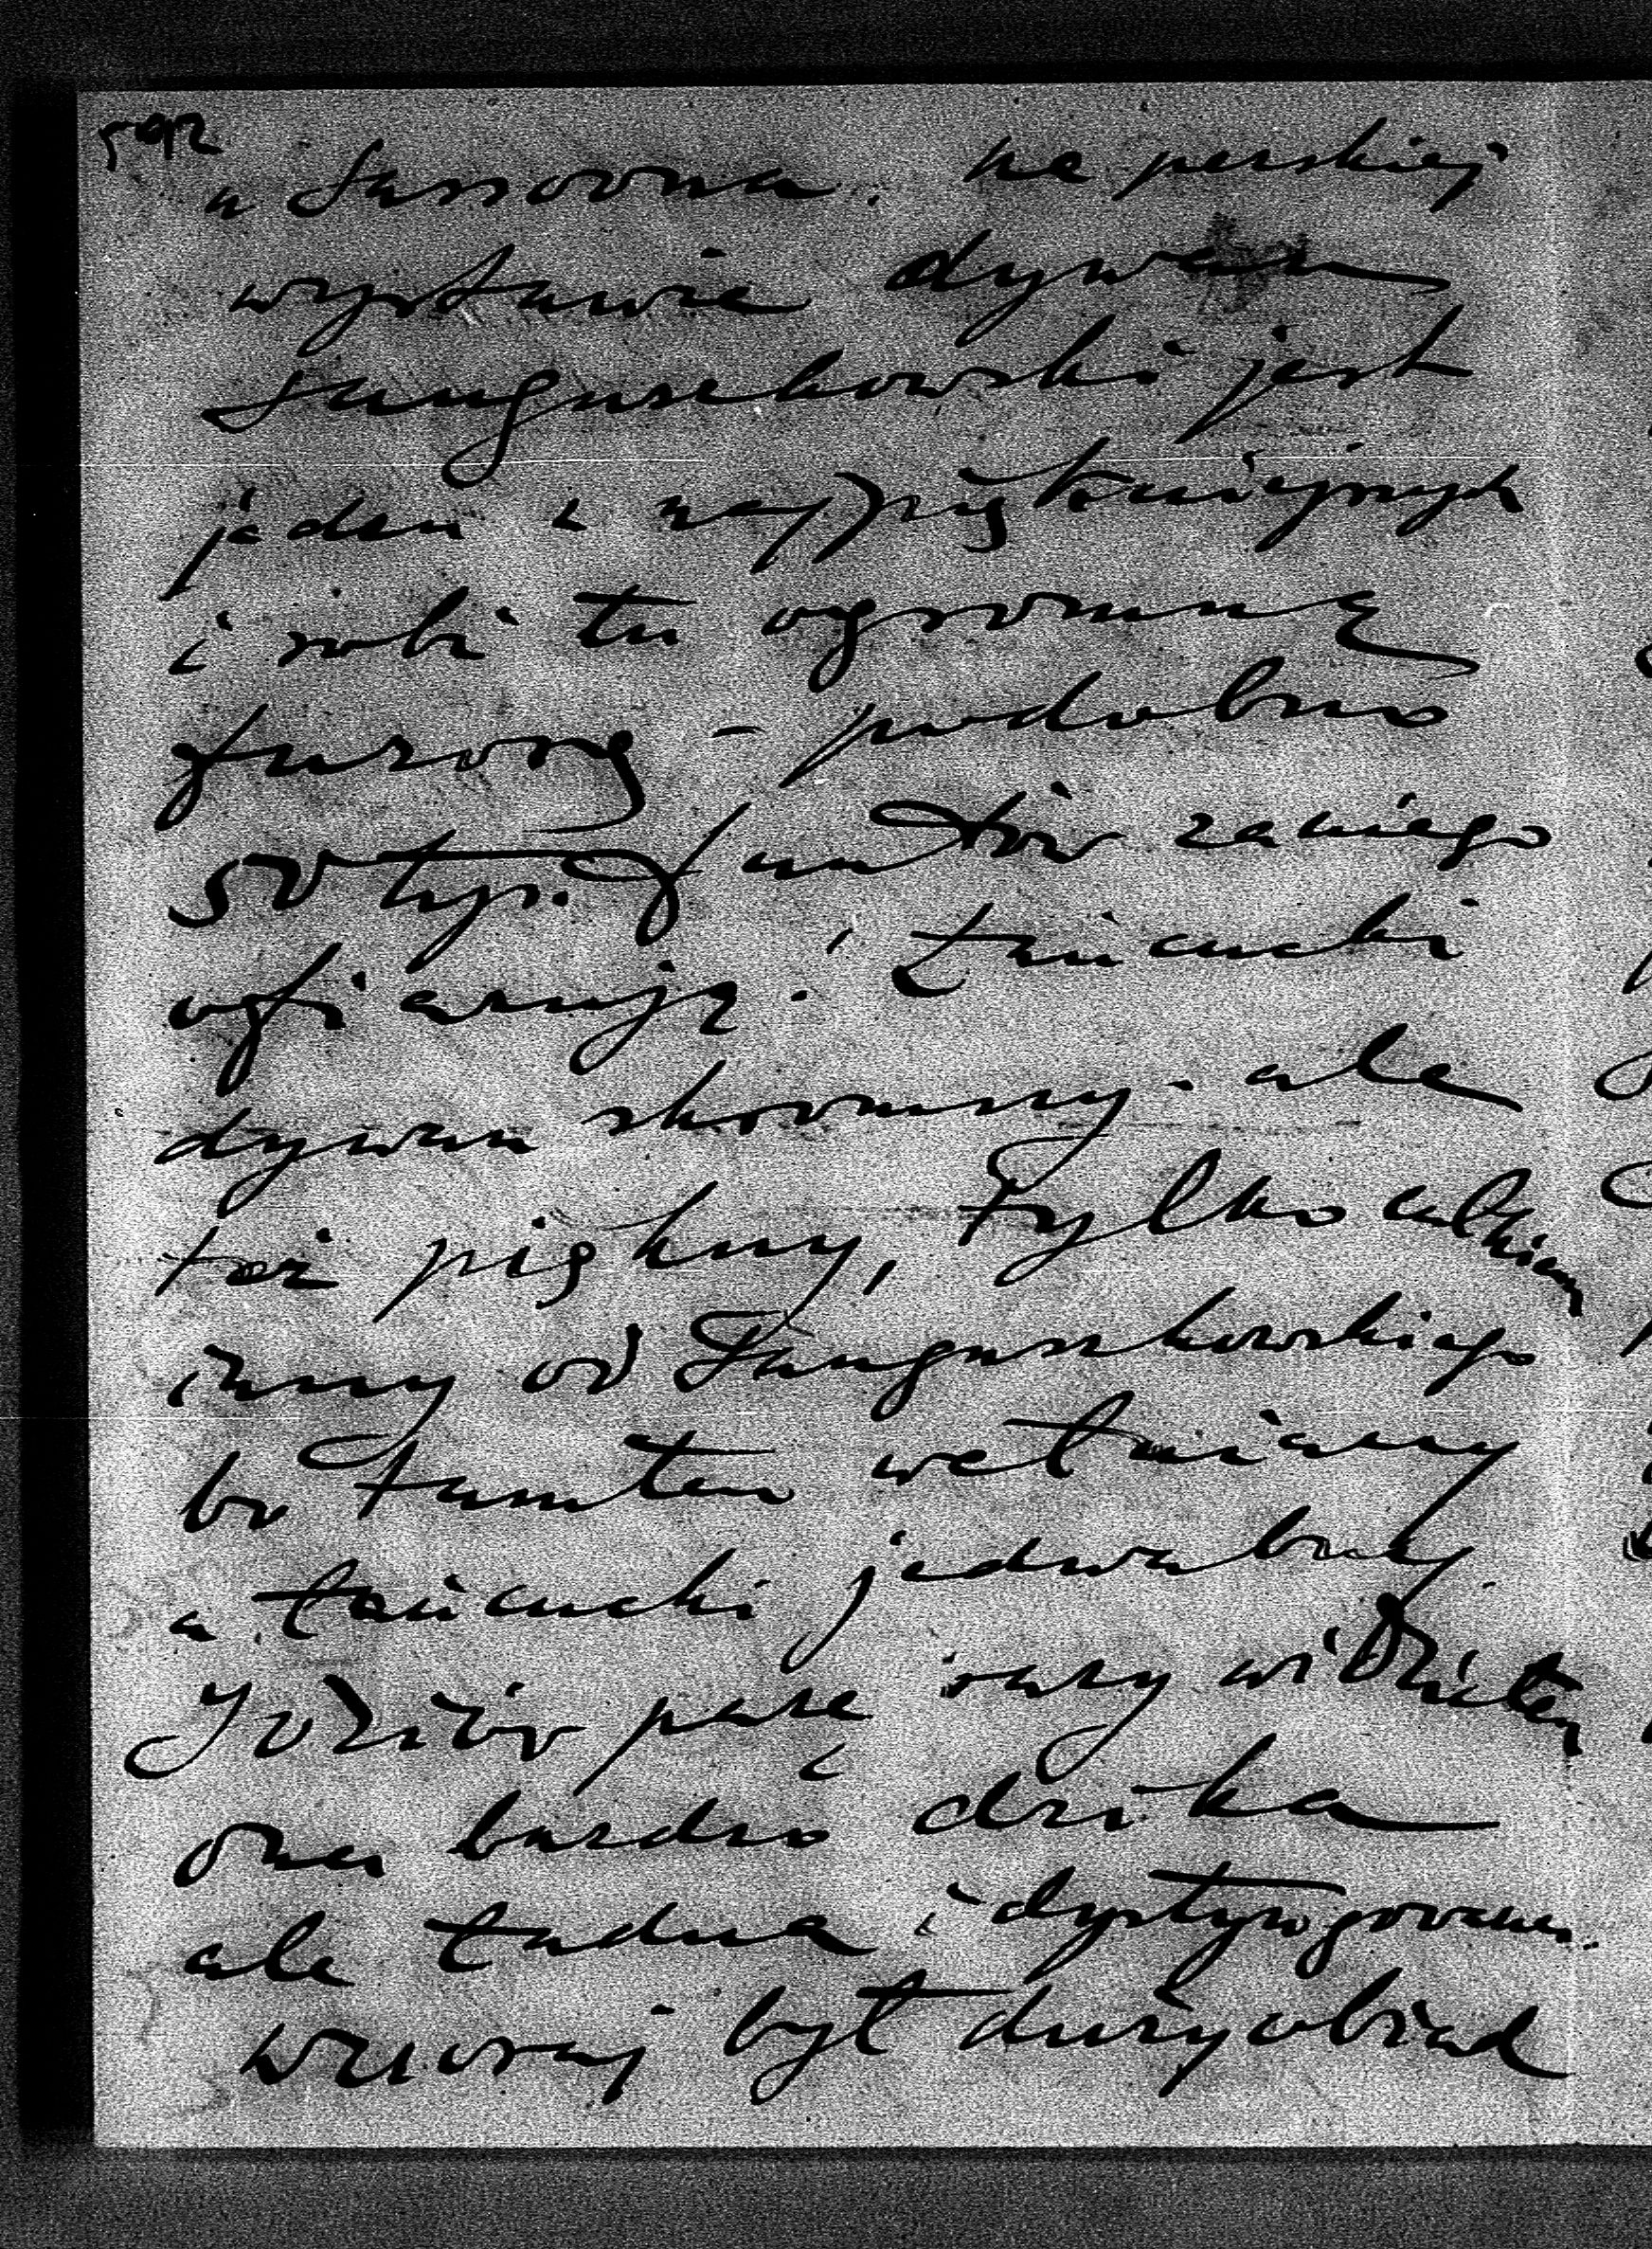 592
u Sassoona. na perskiej
wystawie dywan
Sanguszkowski jest
jeden z najpiękniejszych
i robi tu ogromną
furorę – podobno
50 tys. funtów za niego
ofiarują. Łańcucki
dywan skromny. ale
też piękny, tylko całkiem
inny od Sanguszkowskiego
bo tamten wełniany
a łańcucki jedwabny
Józiów parę razy widziałem
ona bardzo dzika
ale ładna i dystyngowana.
wczoraj był duży obiad